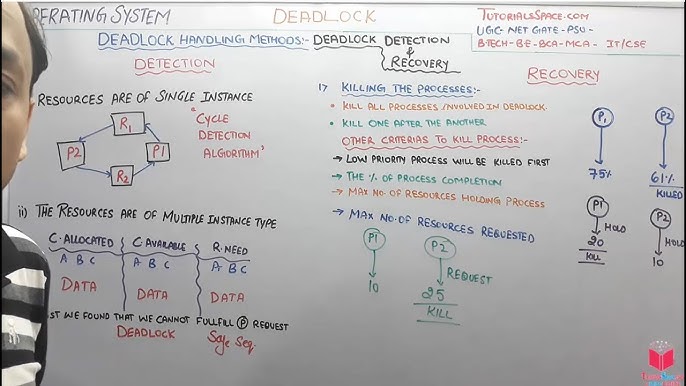 PERATING SYSTEM
DEADLOCK
TUTORIALSSPACE.COM
UGC-NET GATE-PSU-
B.TECH-B.E-BCA-MCA- IT/CSE
DEADLOCK HANDLING METHODS:- DEADLOCK DETECTION
&
RECOVERY
DETECTION
RESOURCES ARE OF SINGLE INSTANCE
R1
P2
P1
R2
"CYCLE
DETECTION
ALGORITHM"
ii) THE RESOURCES ARE OF MULTIPLE INSTANCE TYPE
C.ALLOCATED C.AVAILABLE R.NEED
A B C A B C A B C
DATA DATA DATA
ST WE FOUND THAT WE CANNOT FULLFILL P REQUEST
DEADLOCK Safe Seq.
RECOVERY
i) KILLING THE PROCESSES:-
• KILL ALL PROCESSES INVOLVED IN DEADLOCK.
• KILL ONE AFTER THE ANOTHER
OTHER CRITERIAS TO KILL PROCESS:-
→ LOW PRIORITY PROCESS WILL BE KILLED FIRST
→ THE % OF PROCESS COMPLETION
→ MAX NO. OF RESOURCES HOLDING PROCESS
→ MAX NO. OF RESOURCES REQUESTED
P1
10
P2
REQUEST
25
KILL
P1
75%
P2
61%
KILLED
P1
HOLD
20
KILL
P2
HOLD
10